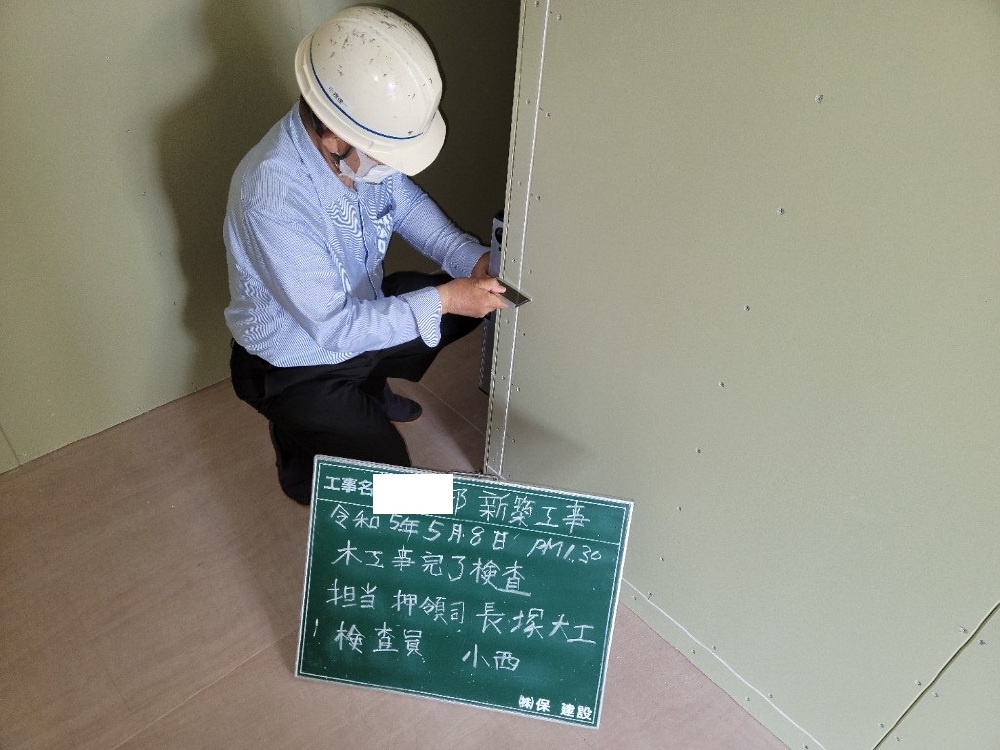 工事名 邸 新築工事
令和5年5月8日 PM1.30
木工事完了検査
担当 押領司 長塚大工
検査員 小西
㈱保 建設